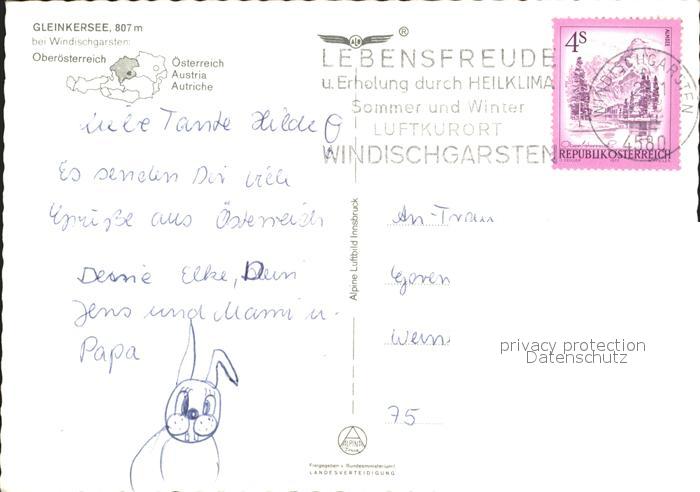 GLEINKERSEE, 807 m
bei Windischgarsten
Oberösterreich
Österreich
Austria
Autriche
®
LEBENSFREUDE
u. Erholung durch HEILKLIMA
Sommer und Winter
LUFTKURORT
WINDISCHGARSTEN
4S
ALMSEE
REPUBLIK ÖSTERREICH
WINDISCHGARSTEN
4580
Liebe Tante Hilde
Es senden Dir viele
Grüße aus Österreich
Deine Elke, Dein
Jens und Mami u.
Papa
Alpine Luftbild Innsbruck
An
75
privacy protection
Datenschutz
ALPINE
Freigegeben v. Bundesministerium f.
LANDESVERTEIDIGUNG